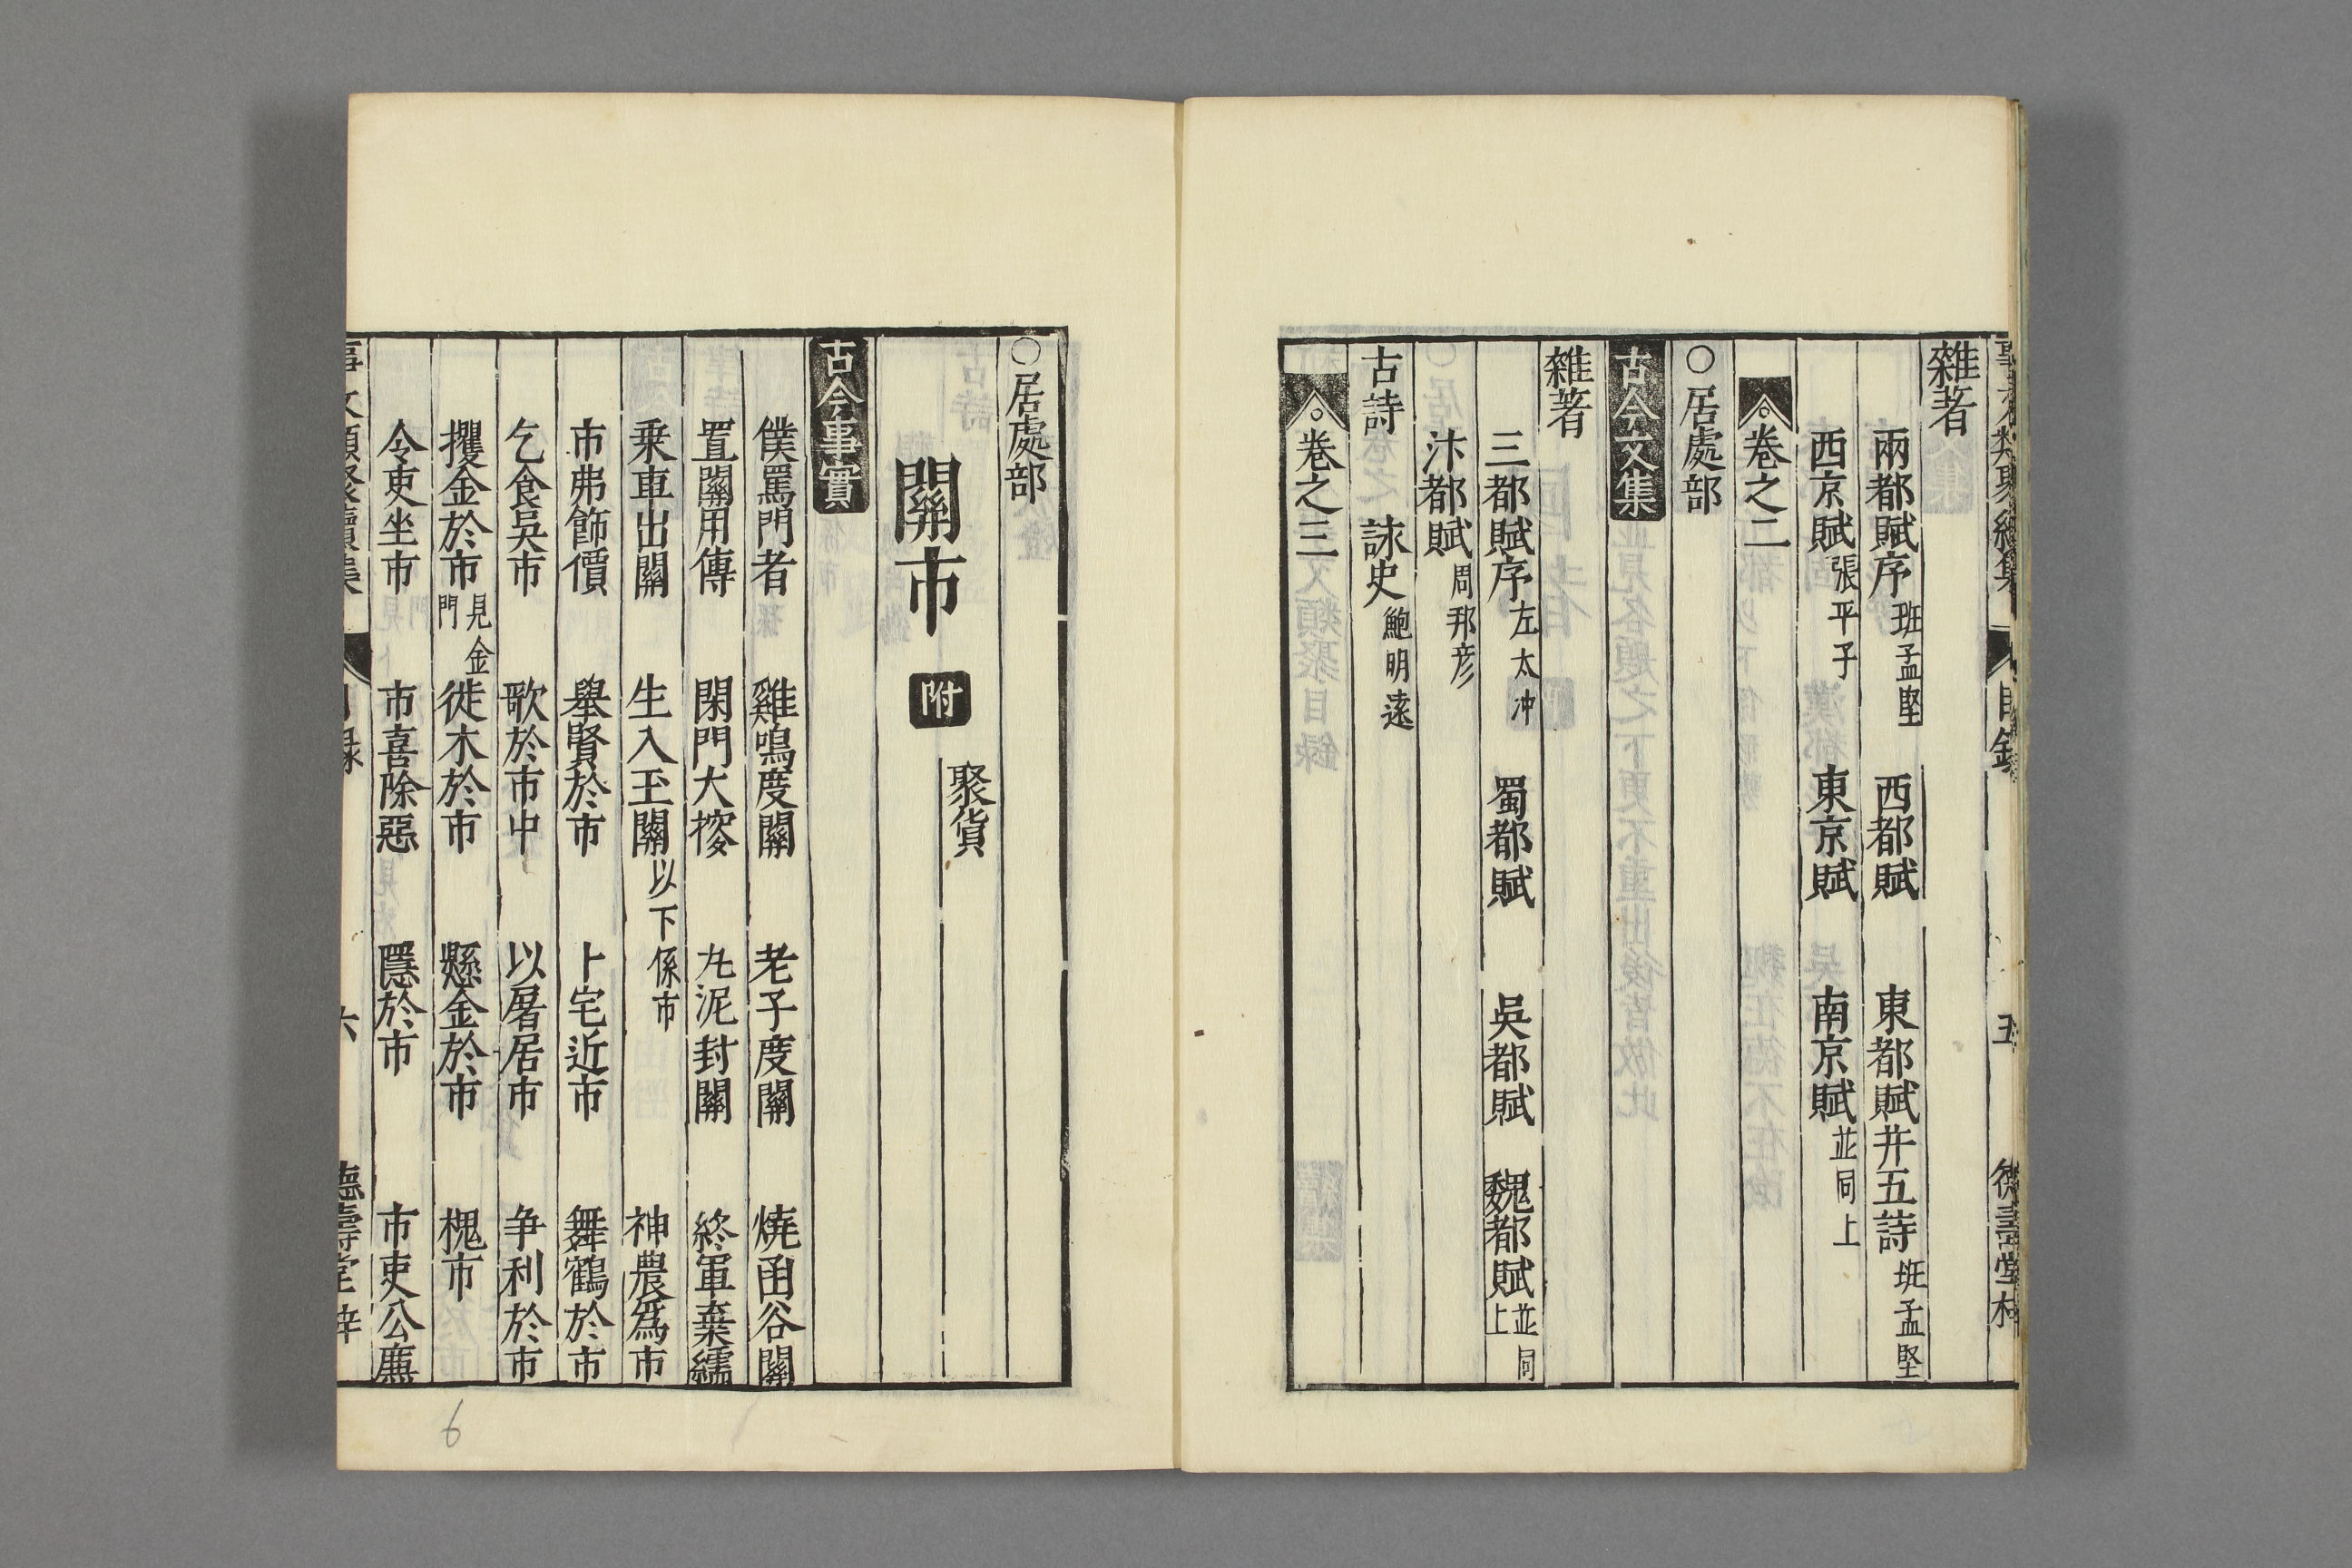 雜著
兩都賦序班孟堅 西都賦 東都賦并五詩班孟堅
西京賦張平子 東京賦 南京賦並同上
卷之二
○居處部
古今文集
雜著
三都賦序左太冲 蜀都賦 吳都賦 魏都賦並同上
汴都賦周邦彦
古詩 詠史鮑明遠
卷之三
○居處部
聚貨
關市 附
古今事實
僕罵門者 雞鳴度關 老子度關 燒函谷關
置關用傳 閉門大搜 丸泥封關 終軍棄繻
乗車出關 生入玉關以下係市 神農爲市
市弗飾價 舉賢於市 卜宅近市 舞鶴於市
乞食吳市 歌於市中 以屠居市 争利於市
攫金於市見金門 徙木於市 懸金於市 槐市
令吏坐市 市喜除惡 隱於市 市吏公廉
六
6